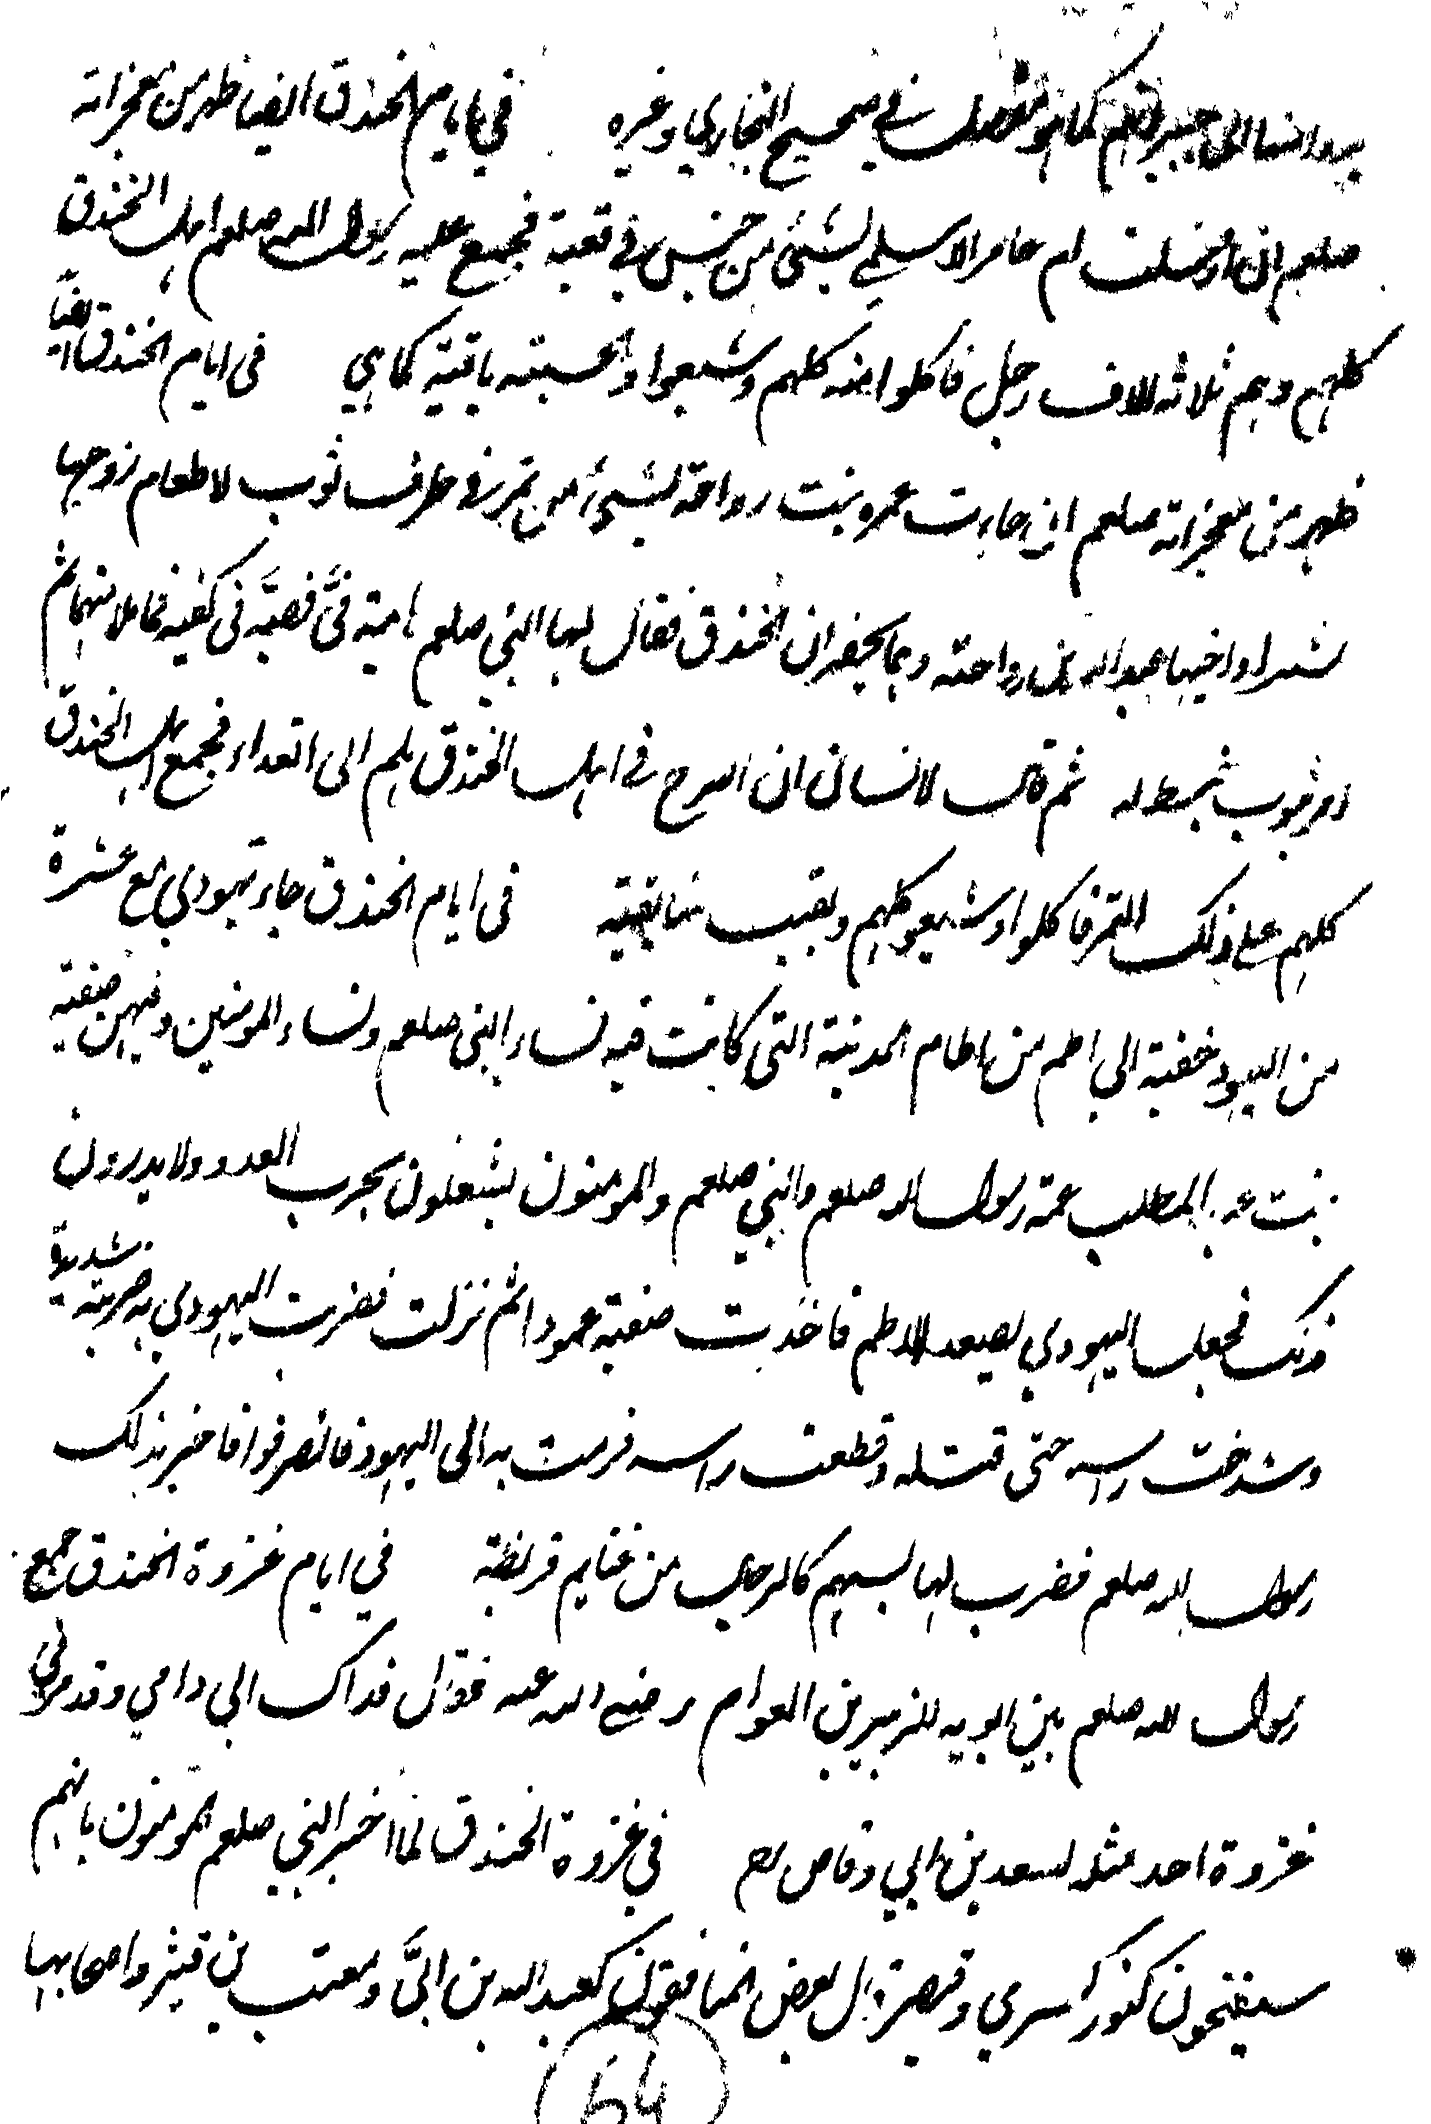 كما هو مفصل في صحيح البخاري وغيره في ايام الخندق ايضا ظهر من معجزاته
صلعم ان ارسلت ام عامر الاسلمي بشئ من حيس في قعبة فجمع عليه رسول الله صلعم اهل الخندق
كلهم وهم ثلاثه الاف رجل فاكلوا منه كلهم وشبعوا والحسيته باقية كما هي في ايام الخندق ايضا
ظهر من معجزاته صلعم ان جاءت عمره بنت رواحة بشئ من تمر في طرف ثوب لاطعام زوجها
بشير او اخيها عبدالله بن رواحته وهما يحفران الخندق فقال لها النبي صلعم هاتيه فيَّ فصبَّه في كفيه فما ملأتهما ثم
امر بثوب فبسط له ثم قال لانسان ان اصرخ في اهل الخندق هلم الى الغداء فجمع اهل الخندق
كلهم على ذلك التمر فاكلوا وشبعو كلهم وبقيت منه بقية في ايام الخندق جاء يهودي مع عشرة
من اليهود خفية الي اطم من اطام المدينة التي كانت فيه نساء النبي صلعم ونساء المومنين وفيهن صفية
بنت عبد المطلب عمة رسول الله صلعم والنبي صلعم والمومنون يشتغلون بحرب العدو ولا يدرون
ذلك فجعل اليهودي يصعد الاطم فاخذت صفية عمودا ثم نزلت فضربت اليهودي به ضربة شديدة
وشدخت راسه حتى قتله وقطعت راسه فرمت به الى اليهود فانصرفوا فاخبر بذلك
رسول الله صلعم فضرب لها بسهم كالرجال من غنايم قريظة في ايام غزوة الخندق جمع
رسول الله صلعم بين ابويه للزبير بن العوام رضي الله عنه فقال فداك ابي وامي وقد مر في
غزوة احد مثله لسعد بن ابي وقاص رضـ في غزوة الخندق لما اخبر النبي صلعم المومنون بانهم
سيفتحون كنوز كسري وقيصر قال بعض المنافقون كعبد الله بن ابيَّ ومعتب بن قيشر واصحابهما
64